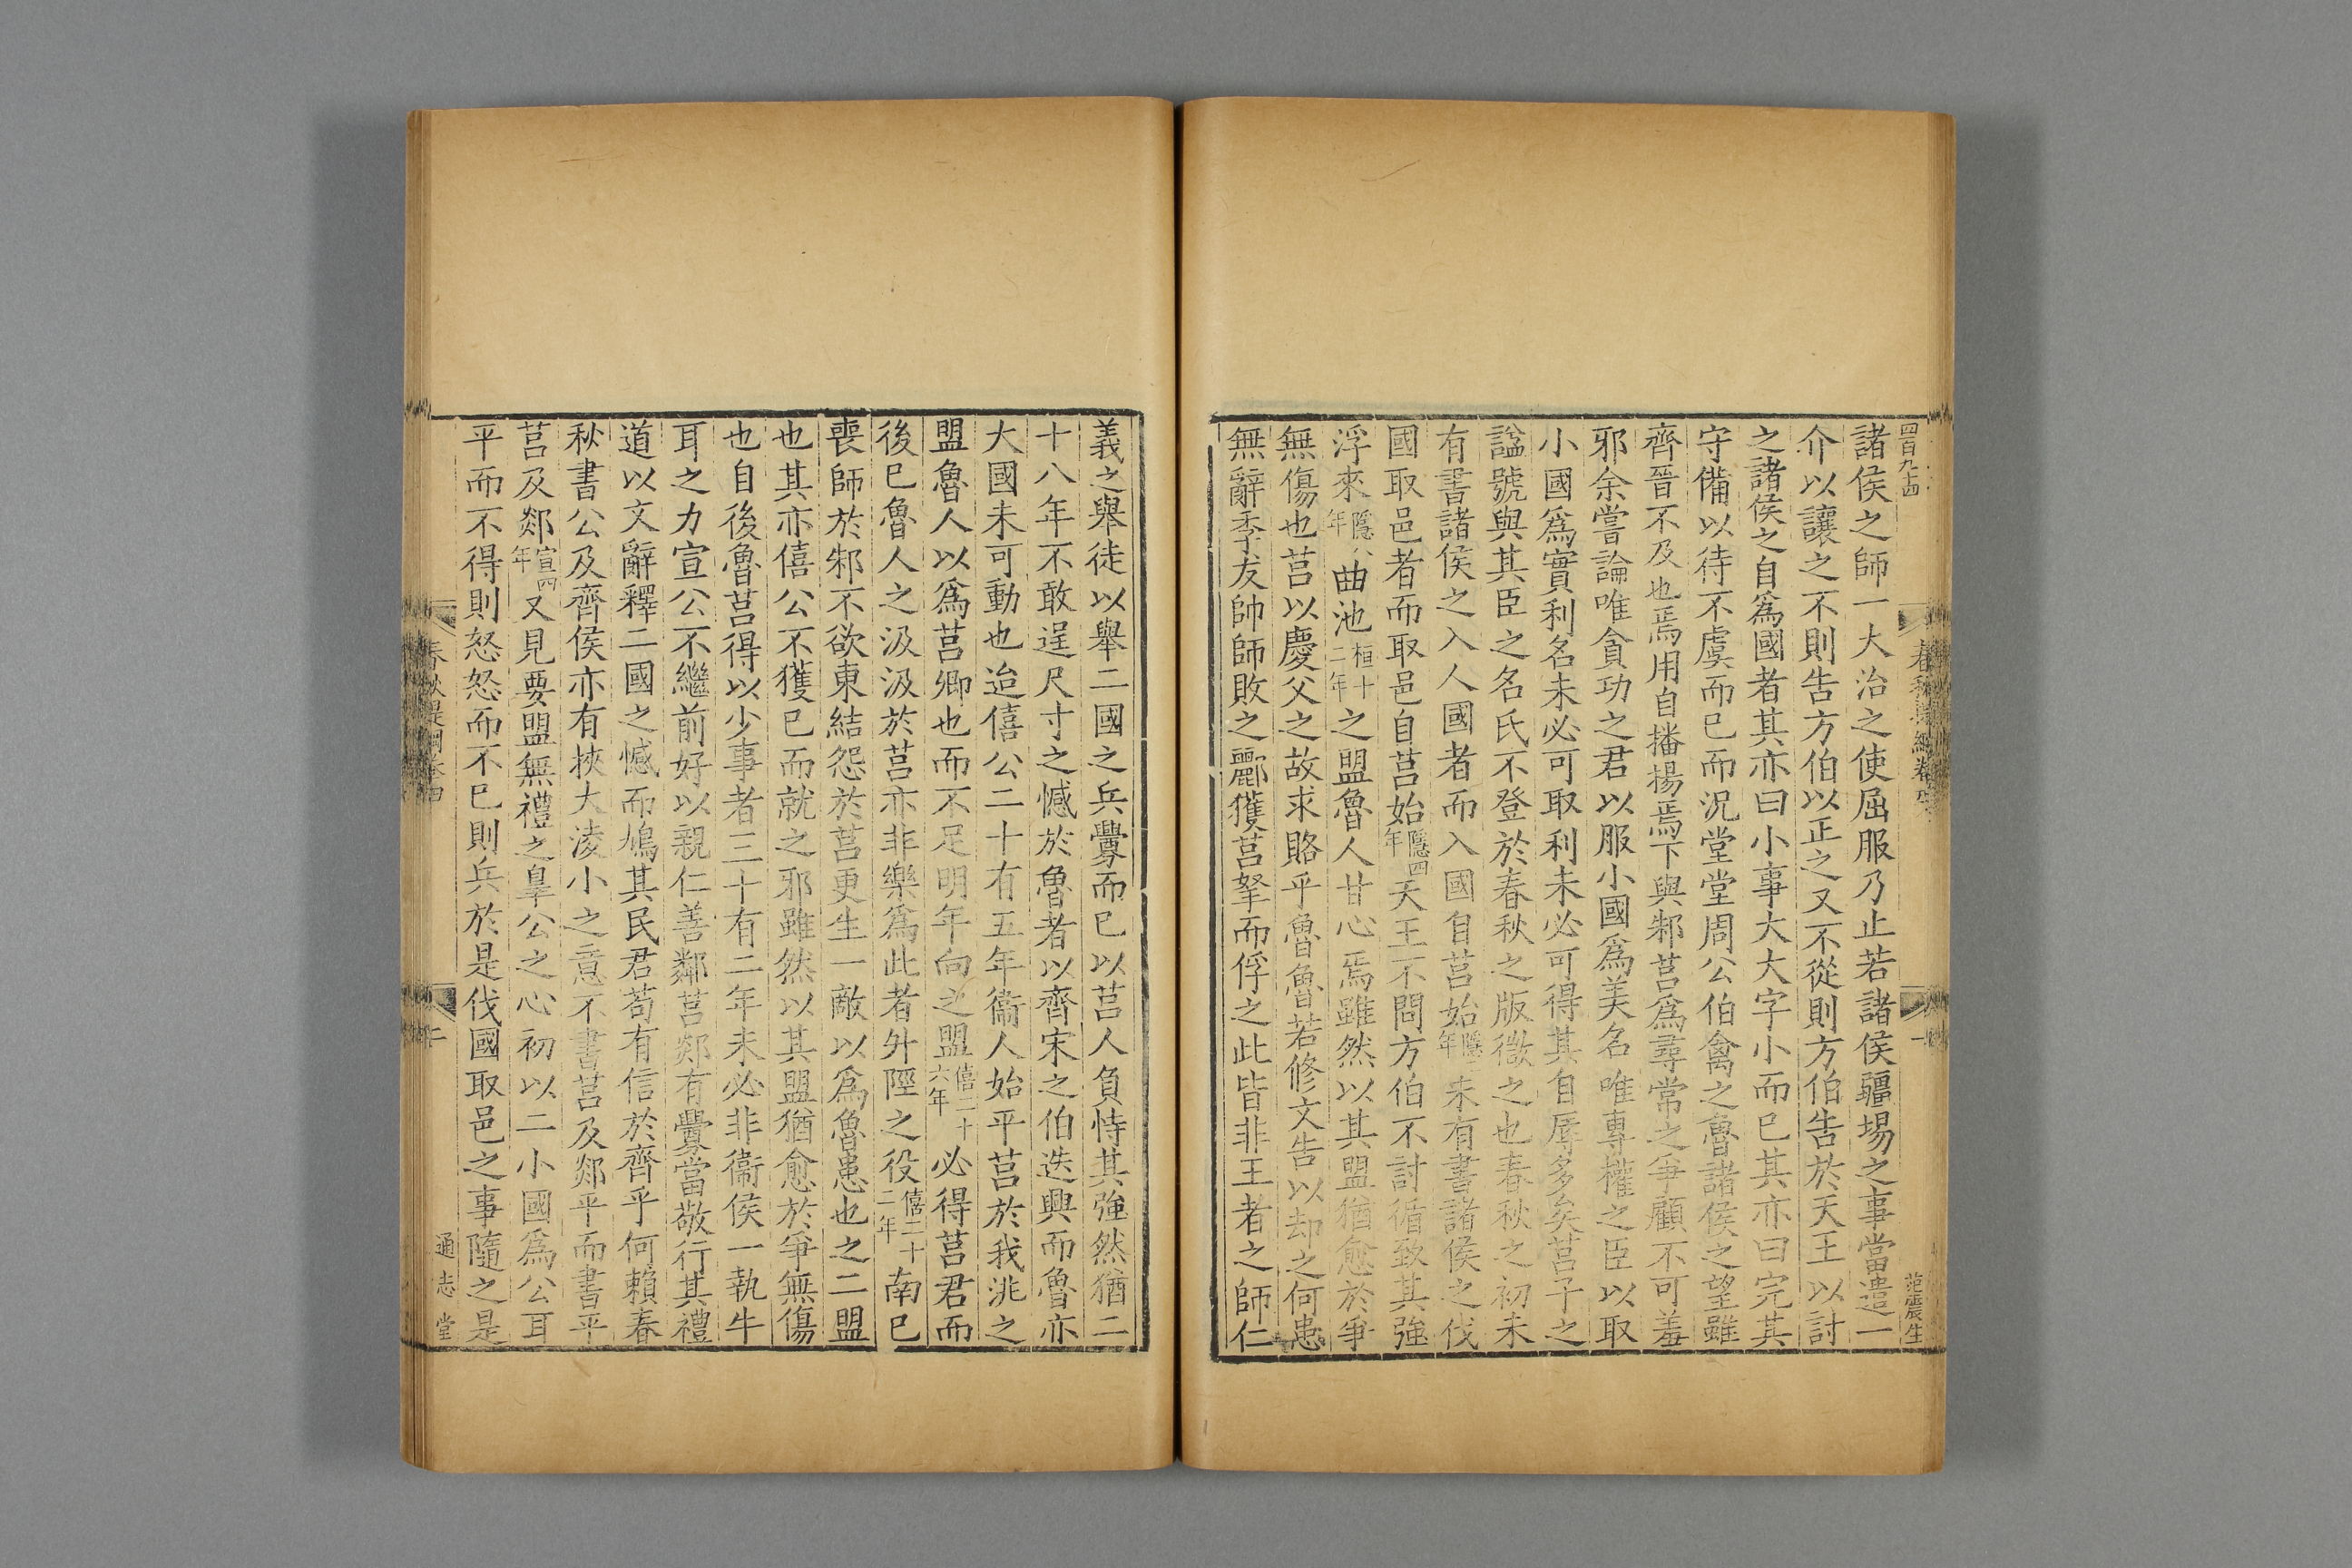 四百九十四
諸侯之師一大治之使屈服乃止若諸侯疆埸之事當遣一
介以讓之不則告方伯以正之又不從則方伯告於天王以討
之諸侯之自爲國者其亦曰小事大大字小而已其亦曰完其
守備以待不虞而已而況堂堂周公伯禽之魯諸侯之望雖
齊晉不及也焉用自播揚焉下與邾莒爲尋常之爭顧不可羞
邪余嘗論唯貪功之君以服小國爲美名唯專權之臣以取
小國爲實利名未必可取利未必可得其自辱多矣莒子之
諡號與其臣之名氏不登於春秋之版微之也春秋之初未
有書諸侯之入人國者而入國自莒始隱二年未有書諸侯之伐
國取邑者而取邑自莒始隱四年天王不問方伯不討循致其強
浮來隱八年曲池桓十二年之盟魯人甘心焉雖然以其盟猶愈於爭
無傷也莒以慶父之故求賂乎魯魯若修文告以却之何患
無辭季友帥師敗之酈獲莒拏而俘之此皆非王者之師仁
范震生
義之舉徒以舉二國之兵釁而已以莒人負恃其強然猶二
十八年不敢逞尺寸之憾於魯者以齊宋之伯迭興而魯亦
大國未可動也迨僖公二十有五年衞人始平莒於我洮之
盟魯人以爲莒卿也而不足明年向之盟僖二十六年必得莒君而
後已魯人之汲汲於莒亦非樂爲此者升陘之役僖二十二年南已
喪師於邾不欲東結怨於莒更生一敵以爲魯患也之二盟
也其亦僖公不獲已而就之邪雖然以其盟猶愈於爭無傷
也自後魯莒得以少事者三十有二年未必非衞侯一執牛
耳之力宣公不繼前好以親仁善鄰莒郯有釁當敬行其禮
道以文辭釋二國之憾而鳩其民君苟有信於齊乎何賴春
秋書公及齊侯亦有挾大淩小之意不書莒及郯平而書平
莒及郯宣四年又見要盟無禮之辠公之心初以二小國爲公耳
平而不得則怒怒而不已則兵於是伐國取邑之事隨之是
通志堂